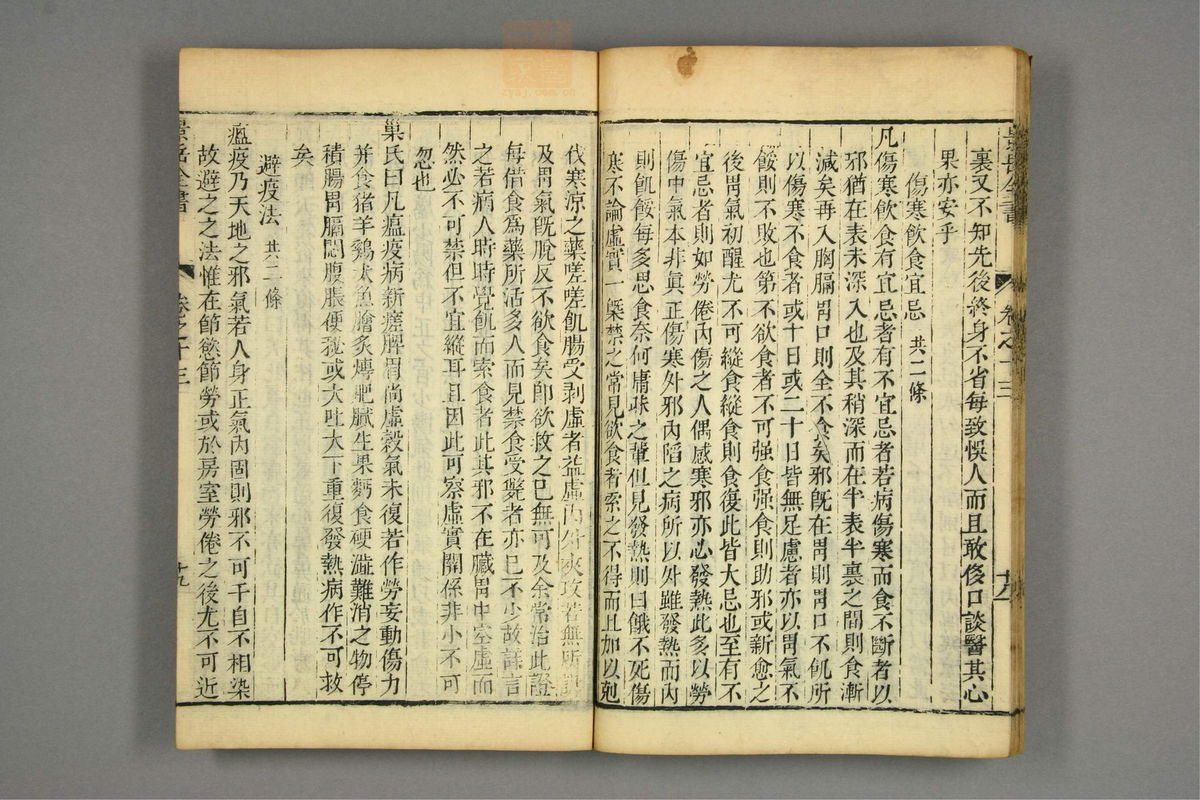 裏又不知先後終身不省每致悞人而且敢侈口談醫其心
果亦安乎
傷寒飲食宜忌 共二條
凡傷寒飲食有宜忌者有不宜忌者若病傷寒而食不斷者以
邪猶在表未深入也及其稍深而在半表半裏之間則食漸
減矣再入胸膈胃口則全不食矣邪旣在胃則胃口不飢所
以傷寒不食者或十日或二十日皆無足慮者亦以胃氣不
餒則不敗也第不欲食者不可强食强食則助邪或新愈之
後胃氣初醒尤不可縱食縱食則食復此皆大忌也至有不
宜忌者則如勞倦內傷之人偶感寒邪亦必發熱此多以勞
傷中氣本非眞正傷寒外邪內陷之病所以外雖發熱而內
則飢餒每多思食奈何庸昧之輩但見發熱則曰餓不死傷
寒不論虛實一槩禁之常見欲食者索之不得而且加以剋
伐寒涼之藥嗟嗟飢腸受剥虛者益虛內外夾攻苦無所訴
及胃氣旣脫反不欲食矣卽欲救之已無可及余常治此證
每借食爲藥所活多人而見禁食受斃者亦已不少故詳言
之若病人時時覺飢而索食者此其邪不在臟胃中空虛而
然必不可禁但不宜縱耳且因此可察虛實關係非小不可
忽也
巢氏曰凡瘟疫病新瘥脾胃尚虛穀氣未復若作勞妄動傷力
并食猪羊鷄犬魚膾炙煿肥膩生果麪食硬澁難消之物停
積腸胃膈悶腹脹便秘或大吐大下重復發熱病作不可救
矣
避疫法 共二條
瘟疫乃天地之邪氣若人身正氣內固則邪不可干自不相染
故避之之法惟在節慾節勞或於房室勞倦之後尤不可近
景岳全書
卷之十三
十九